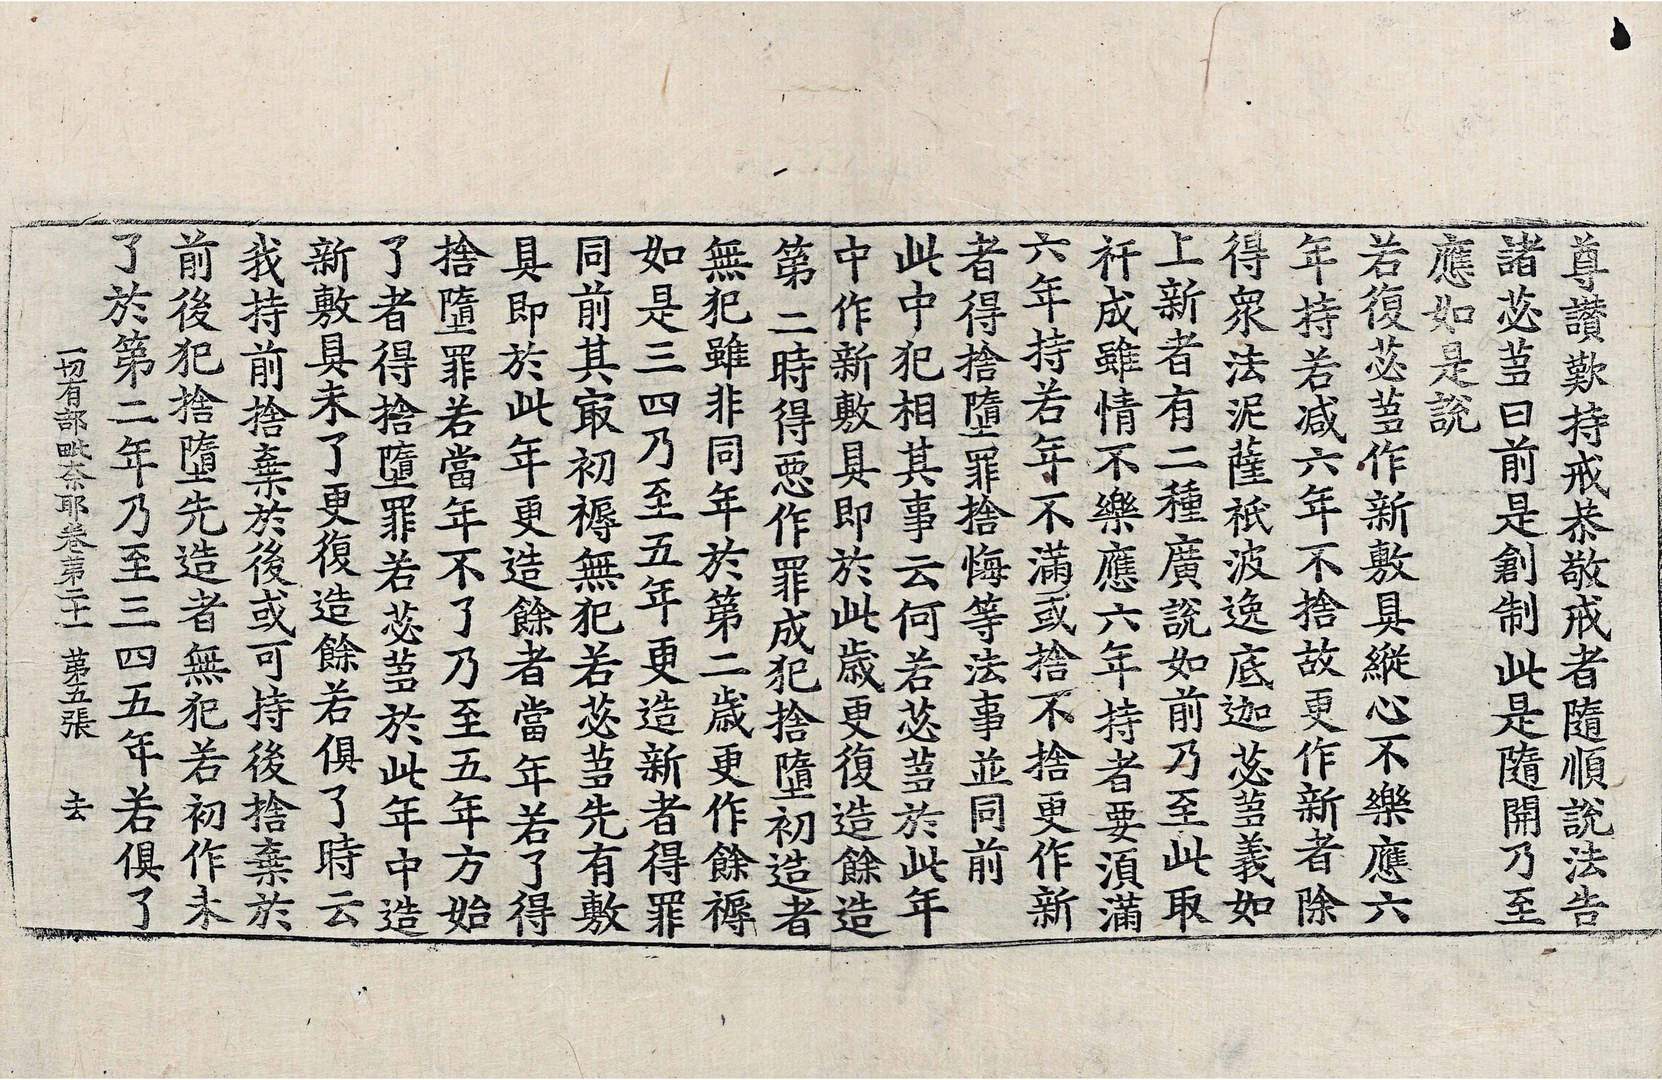 尊讃歎持戒恭敬戒者隨順說法告
諸苾芻曰前是創制此是隨開乃至
應如是說
若復苾芻作新敷具縱心不樂應六
年持若减六年不捨故更作新者除
得衆法泥薩祇波逸底迦苾芻義如
上新者有二種廣說如前乃至此取
衦成雖情不樂應六年持者要湏滿
六年持若年不滿或捨不捨更作新
者得捨墮罪捨悔等法事並同前
此中犯相其事云何若苾芻於此年
中作新敷具即於此歲更復造餘造
第二時得惡作罪成犯捨墮初造者
無犯雖非同年於第二歲更作餘褥
如是三四乃至五年更造新者得罪
同前其㝡初褥無犯若苾芻先有敷
具即於此年更造餘者當年若了得
捨墮罪若當年不了乃至五年方始
了者得捨墮罪若苾芻於此年中造
新敷具未了更復造餘若俱了時云
我持前捨棄於後或可持後捨棄於
前後犯捨墮先造者無犯若初作未
了於第二年乃至三四五年若俱了
一切有部毗奈耶卷第二十一　第五張　去